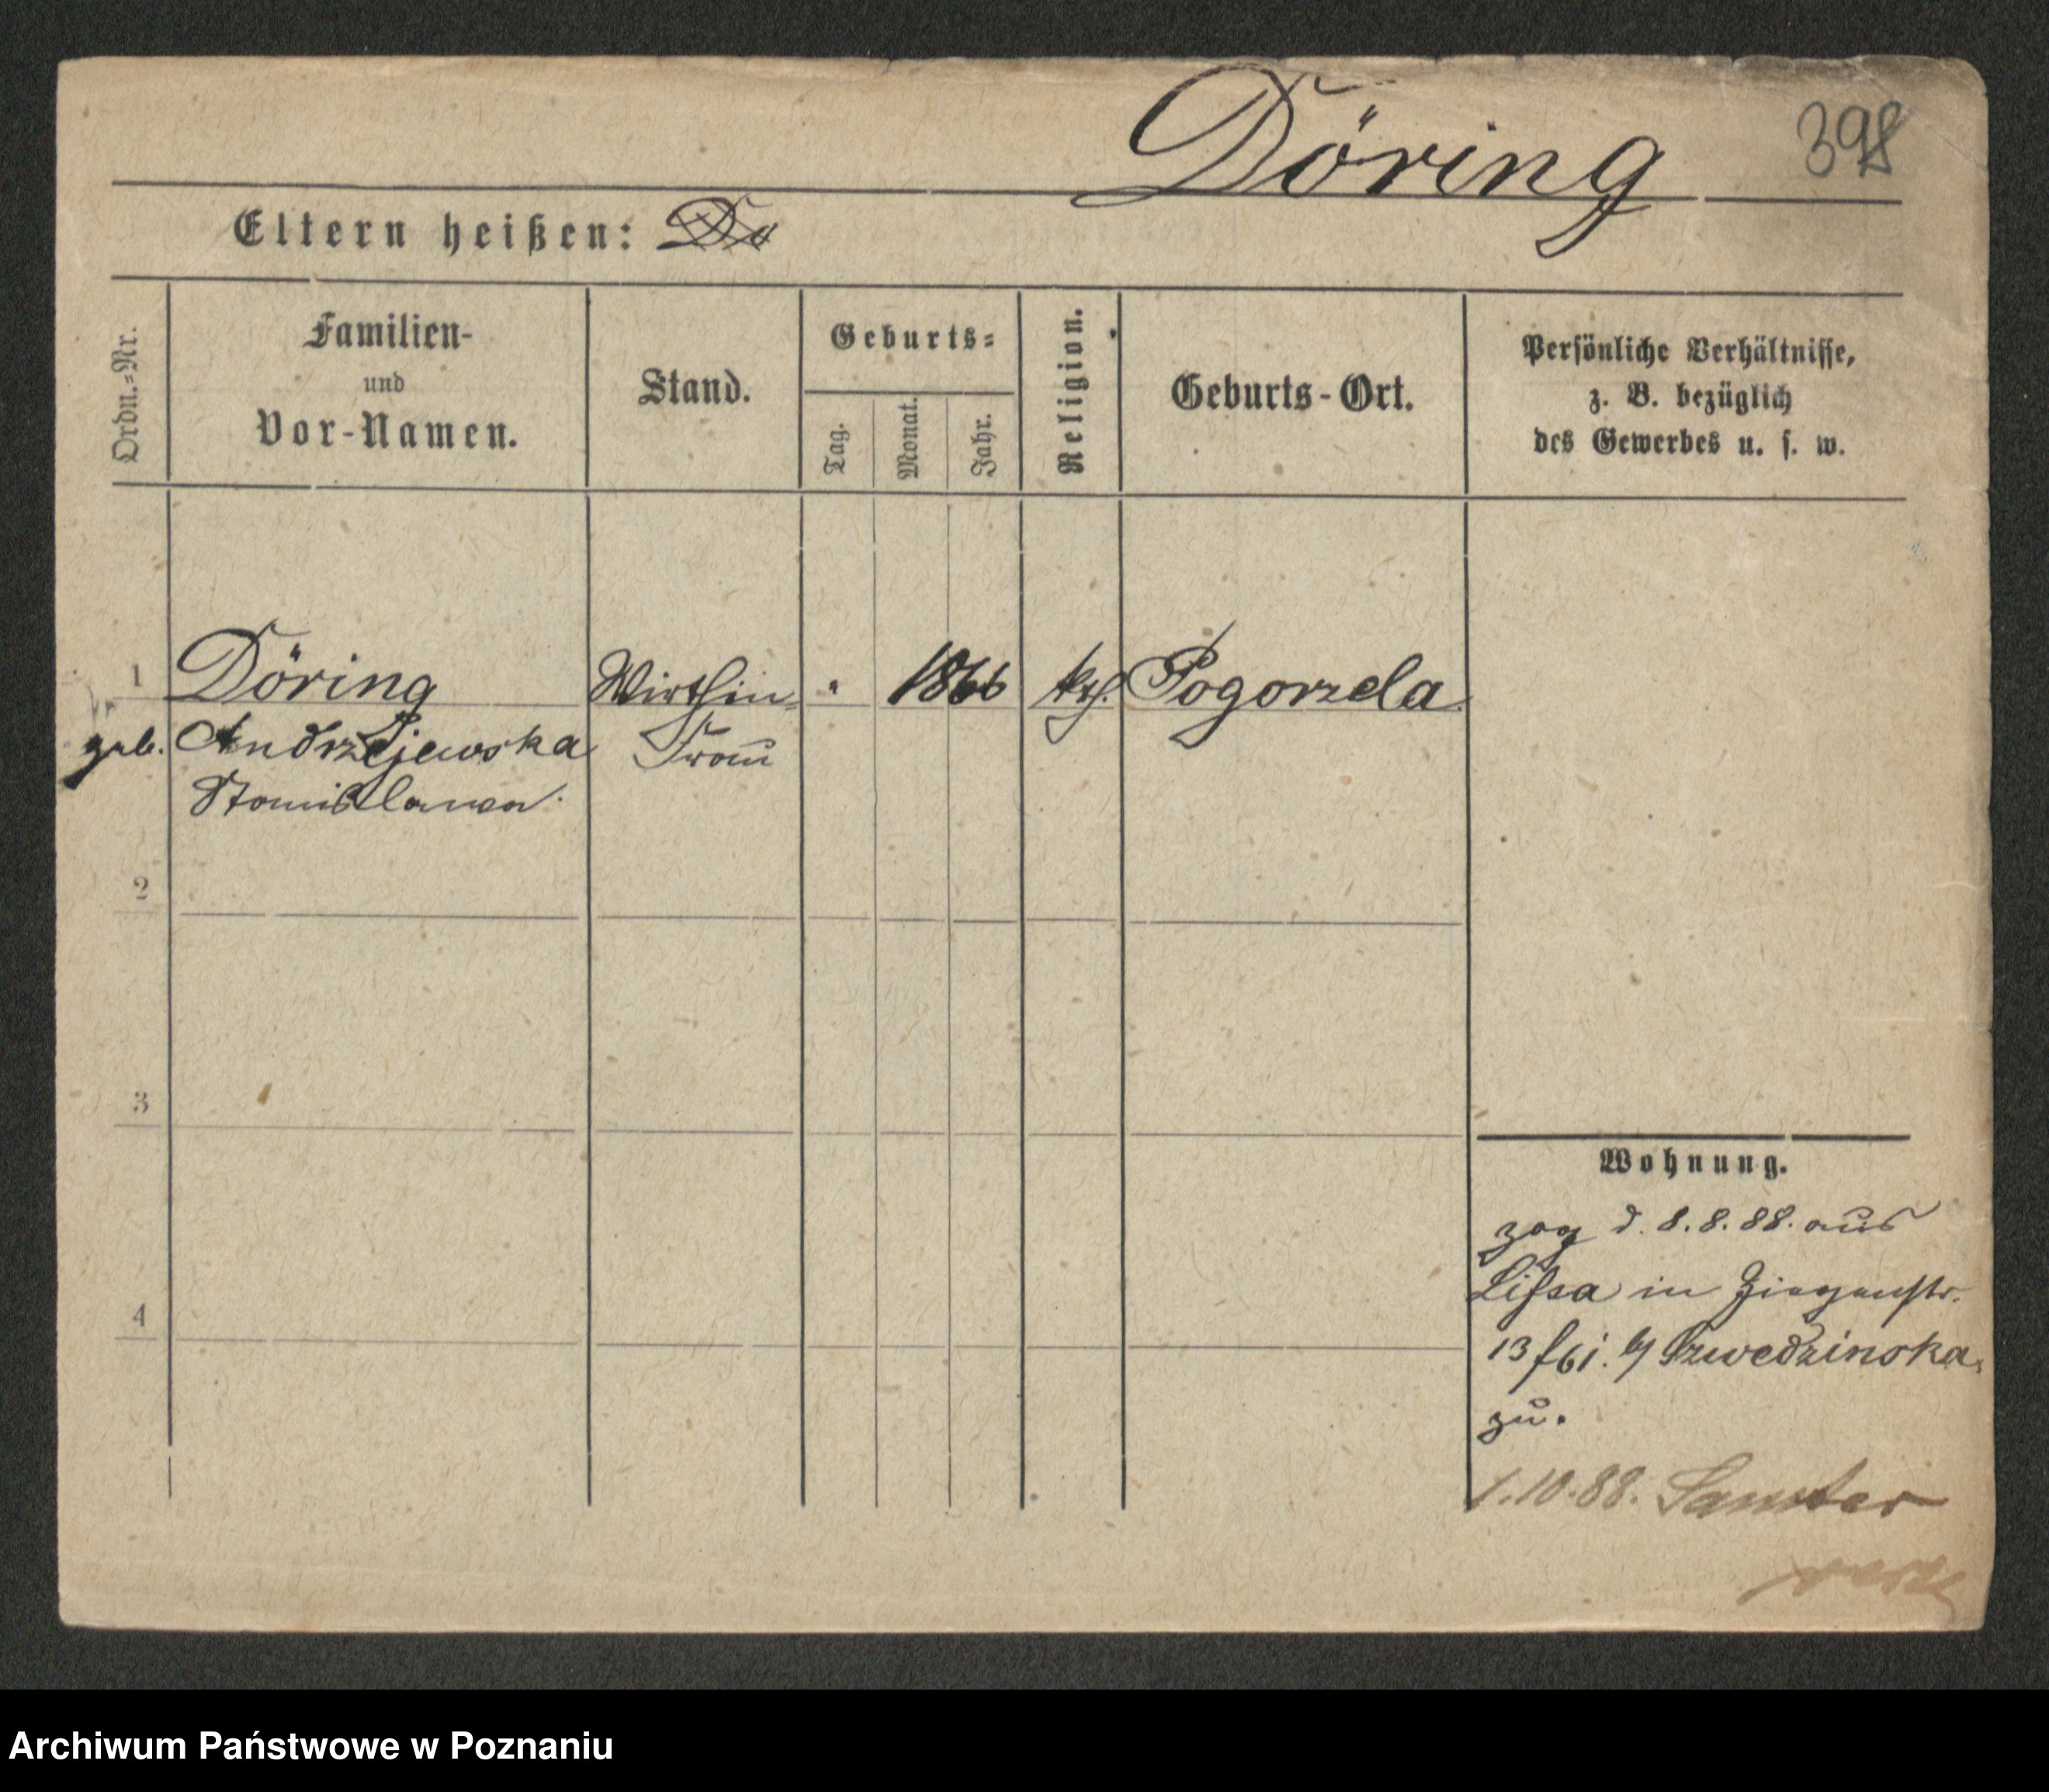 Döring
398
Eltern heißen: Do
Ordn.=Nr.
Familien-
und
Vor-Namen.
Stand.
Geburts=
Tag.
Monat.
Jahr.
Religion.
Geburts-Ort.
Persönliche Verhältnisse,
z. B. bezüglich
des Gewerbes u. s. w.
1 Döring Wirthin " 1866 kth. Pogorzela
geb. Andrzejewska Frau
Stanislawa.
2
3
4
Wohnung.
zog d. 8. 8. 88. aus
Lissa in Ziegenstr.
13 b/ Szwedzinska
zu.
1. 10. 88. Samter
Archiwum Państwowe w Poznaniu